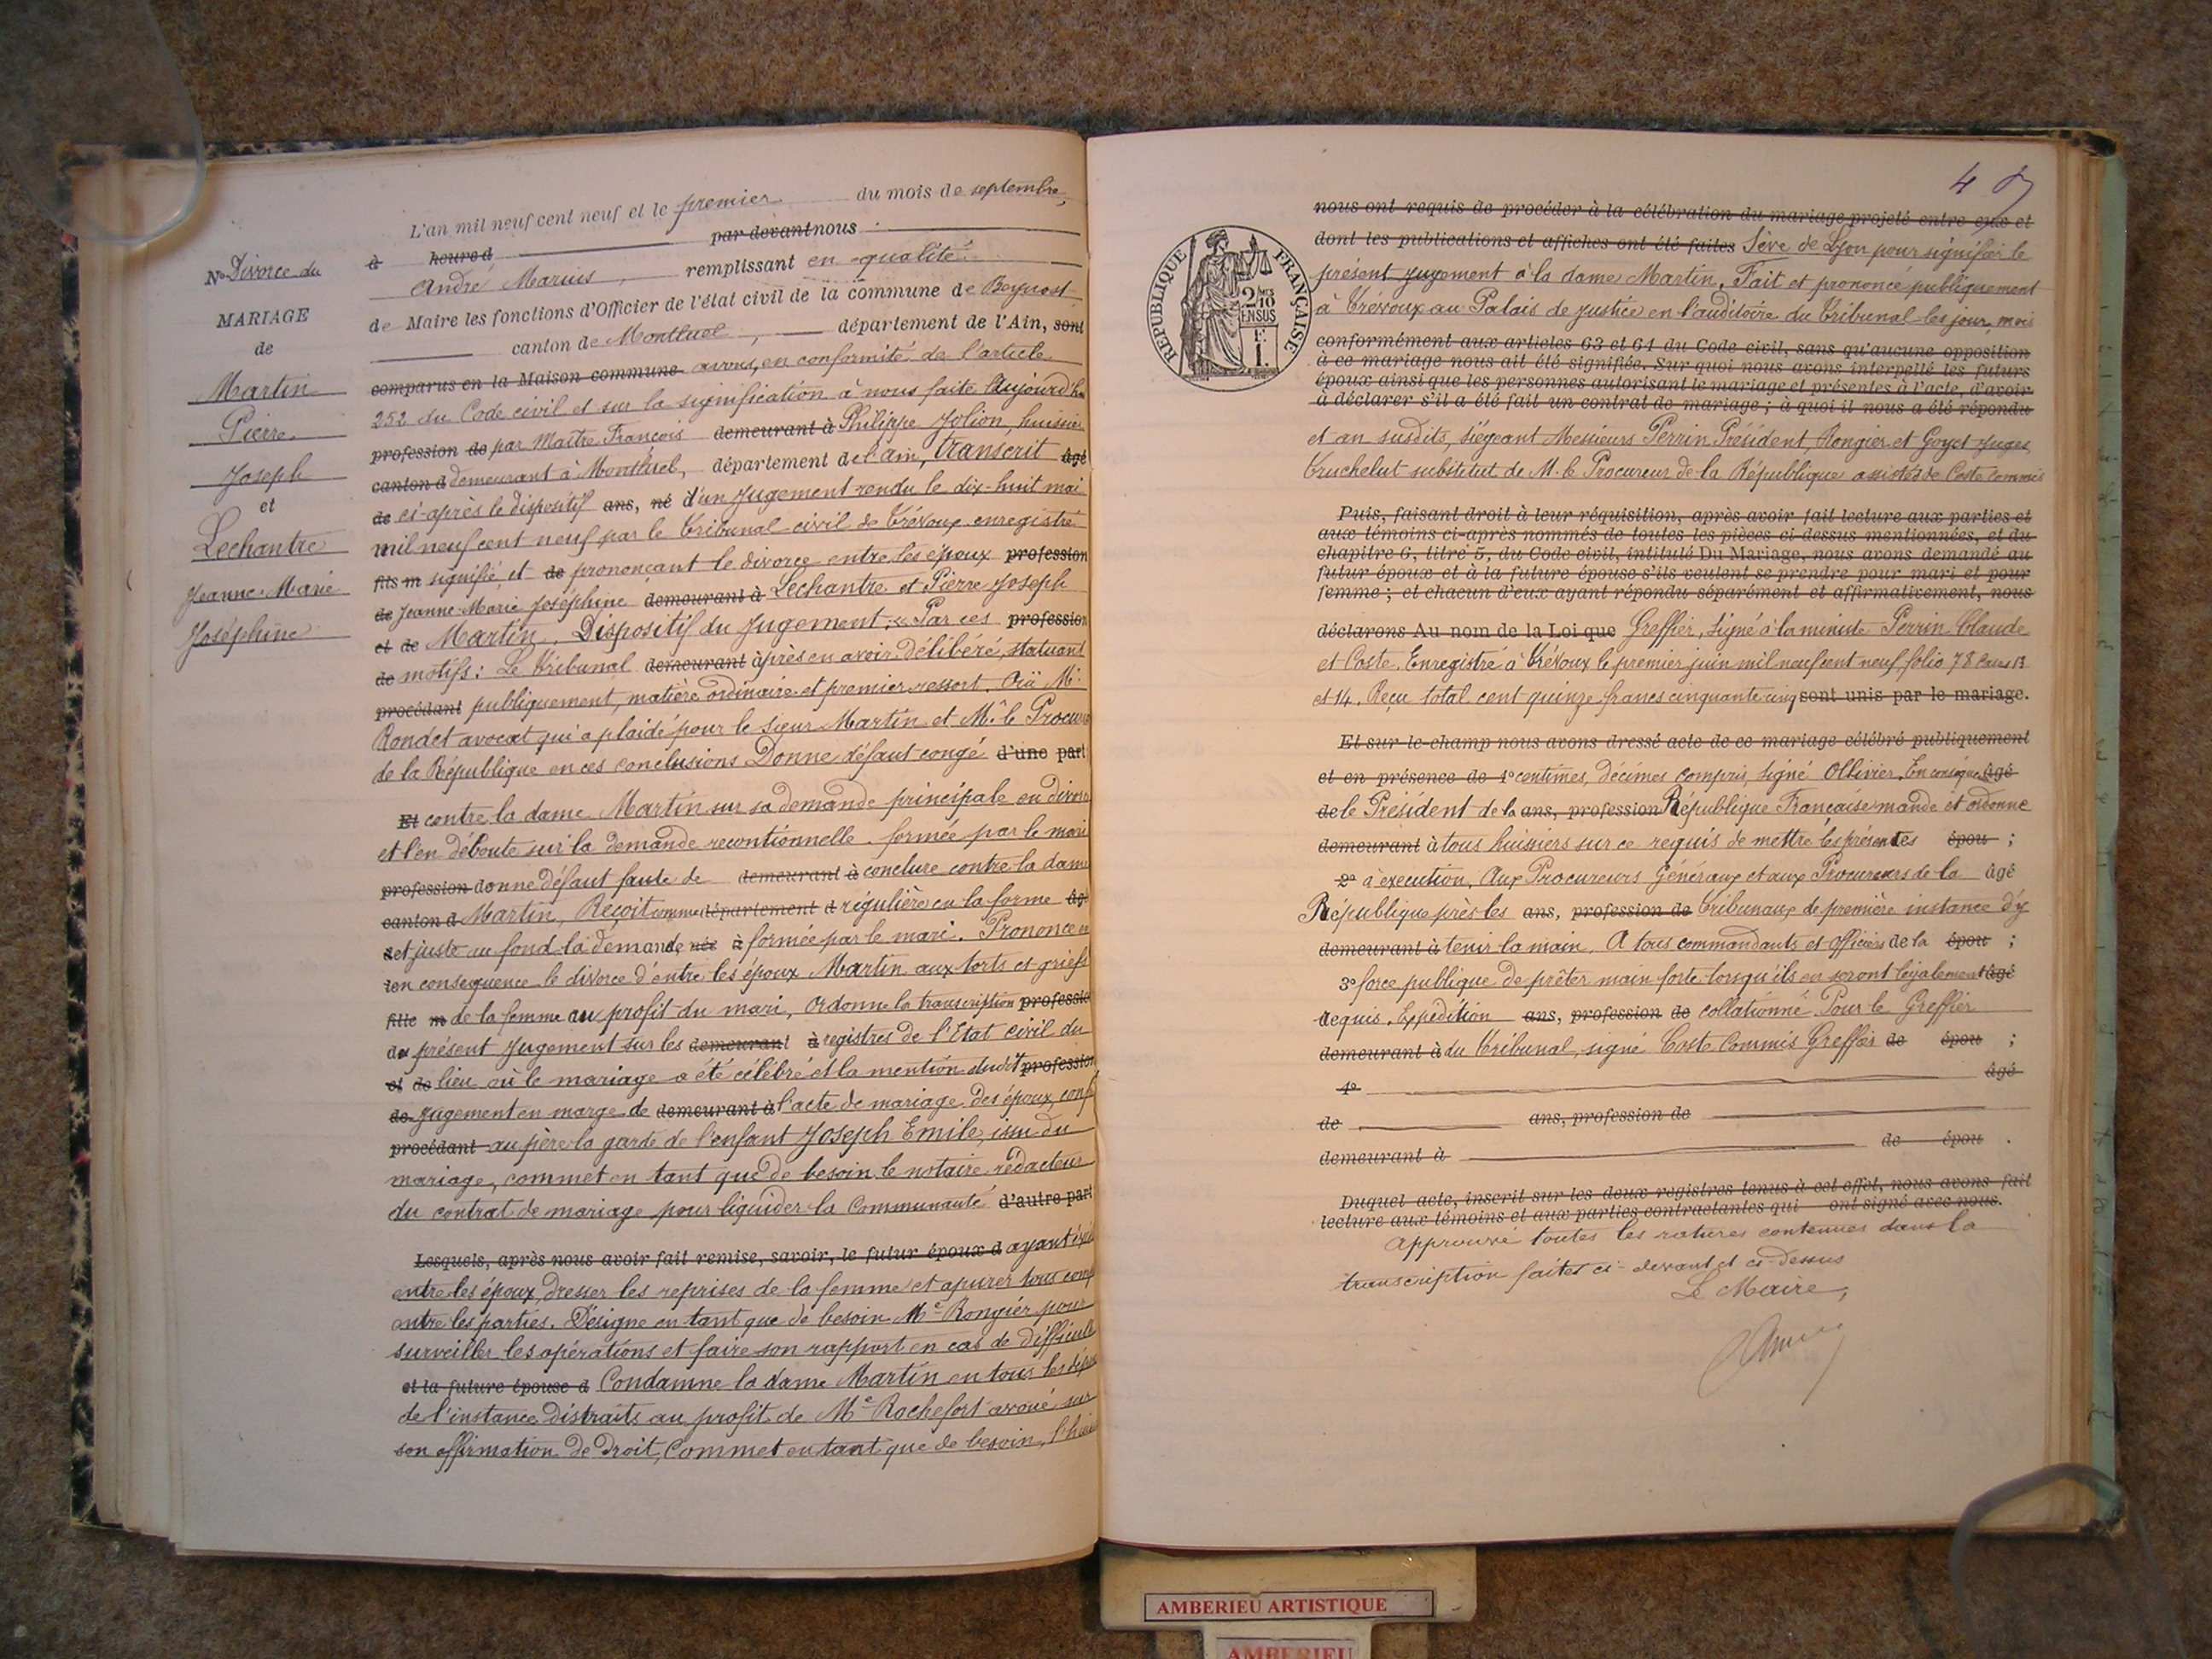 N° Divorce du
MARIAGE
de
Martin
Pierre
Joseph
et
Lechantre
Jeanne-Marie
Joséphine
L'an mil neuf cent neuf et le premier du mois de septembre,
à heures d par devant nous
André Marius, remplissant en qualité
de Maire les fonctions d'Officier de l'état civil de la commune de Beynost,
canton de Montluel, département de l'Ain, sont
comparus en la Maison commune avons, en conformité de l'article
252 du Code civil et sur la signification à nous faite Aujourd'hui
profession de par Maître François demeurant à Philippe Jolion, huissier
canton d demeurant à Montluel, département de l'ain, transcrit âgé
de ci-après le dispositif ans, né d'un Jugement rendu le dix-huit mai
mil neuf cent neuf par le tribunal civil de Trévoux, enregistré
fils m signifié, et de prononçant le divorce entre les époux profession
de Jeanne-Marie Joséphine demeurant à Lechantre et Pierre Joseph
et de Martin. Dispositif du Jugement: « Par ces profession
de motifs: Le Tribunal demeurant à après en avoir délibéré, statuant
procédant publiquement, matière ordinaire et premier ressort. Oui Me
Rondet avocat qui a plaidé pour le sieur Martin et Mr le Procureur
de la République en ces conclusions Donne défaut congé d'une part
Et contre la dame Martin sur sa demande principale en divorce
et l'en déboute sur la demande recontionnelle formée par le mari
profession donne défaut faute de demeurant à conclure contre la dame
canton d Martin, Reçoit comme département d régulière en la forme âgé
et juste au fond la demande née à formée par le mari. Prononce en
conséquence le divorce d'entre les époux Martin aux torts et griefs
fille m de la femme au profit du mari, Ordonne la transcription profession
du présent Jugement sur les demeurant à registres de l'Etat civil du
et de lieu où le mariage a été célébré et la mention dudit profession
de Jugement en marge de demeurant à l'acte de mariage des époux, conf
procédant au père la garde de l'enfant Joseph Emile, issu du
mariage, commet en tant que de besoin le notaire rédacteur
du contrat de mariage pour liquider la Communauté d'autre part
Lesquels, après nous avoir fait remise, savoir, le futur époux d ayant existé
entre les époux, dresser les reprises de la femme et apurer tous comp
entre les parties. Désigne en tant que de besoin Me Rongier pour
surveiller les opérations et faire son rapport en cas de difficulté
et la future épouse d Condamne la dame Martin en tous les dépens
de l'instance distraits au profit de Me Rochefort avoué sur
son affirmation de droit, Commet en tant que de besoin, l'huissier
RÉPUBLIQUE FRANÇAISE
2/10 EN SUS
1F.
nous ont requis de procéder à la célébration du mariage projeté entre eux et
dont les publications et affiches ont été faites Sève de Lyon pour signifier le
présent jugement à la dame Martin. Fait et prononcé publiquement
à Trévoux au Palais de justice en l'auditoire du Tribunal les jour, mois
conformément aux articles 63 et 64 du Code civil, sans qu'aucune opposition
à ce mariage nous ait été signifiée. Sur quoi nous avons interpellé les futurs
époux ainsi que les personnes autorisant le mariage et présentes à l'acte, d'avoir
à déclarer s'il a été fait un contrat de mariage; à quoi il nous a été répondu
et an susdits, siégeant Messieurs Perrin Président, Rongier et Goyet Juges
Truchelut substitut de M. le Procureur de la République assistés de Coste Commis
Puis, faisant droit à leur réquisition, après avoir fait lecture aux parties et
aux témoins ci-après nommés de toutes les pièces ci-dessus mentionnées, et du
chapitre 6, titre 5, du Code civil, intitulé Du Mariage, nous avons demandé au
futur époux et à la future épouse s'ils veulent se prendre pour mari et pour
femme; et chacun d'eux ayant répondu séparément et affirmativement, nous
déclarons Au nom de la Loi que Greffier, Signé à la minute Perrin Claude
et Coste. Enregistré à Trévoux le premier juin mil neuf cent neuf folio 78 Case 13
et 14. Reçu total cent quinze francs cinquante cinq sont unis par le mariage.
Et sur-le-champ nous avons dressé acte de ce mariage célébré publiquement
et en présence de 1° centimes, décimes compris, signé Ollivier. En conséquence âgé
de le Président de la ans, profession République Française mande et ordonne
demeurant à tous huissiers sur ce requis de mettre les présentes épou ;
2° à exécution, Aux Procureurs Généraux et aux Procureurs de la âgé
République près les ans, profession de Tribunaux de première instance d'y
demeurant à tenir la main. A tous commandants et officiers de la épou ;
3° force publique de prêter main forte lorsqu'ils en seront légalement âgé
requis. Expédition ans, profession de collationné. Pour le Greffier
demeurant à du Tribunal, signé Coste Commis Greffier de épou ;
4° âgé
de ans, profession de
demeurant à de épou .
Duquel acte, inscrit sur les deux registres tenus à cet effet, nous avons fait
lecture aux témoins et aux parties contractantes qui ont signé avec nous.
Approuvé toutes les ratures contenues dans la
transcription faites ci-devant et ci-dessus
Le Maire,
AMBERIEU ARTISTIQUE
AMBERIEU